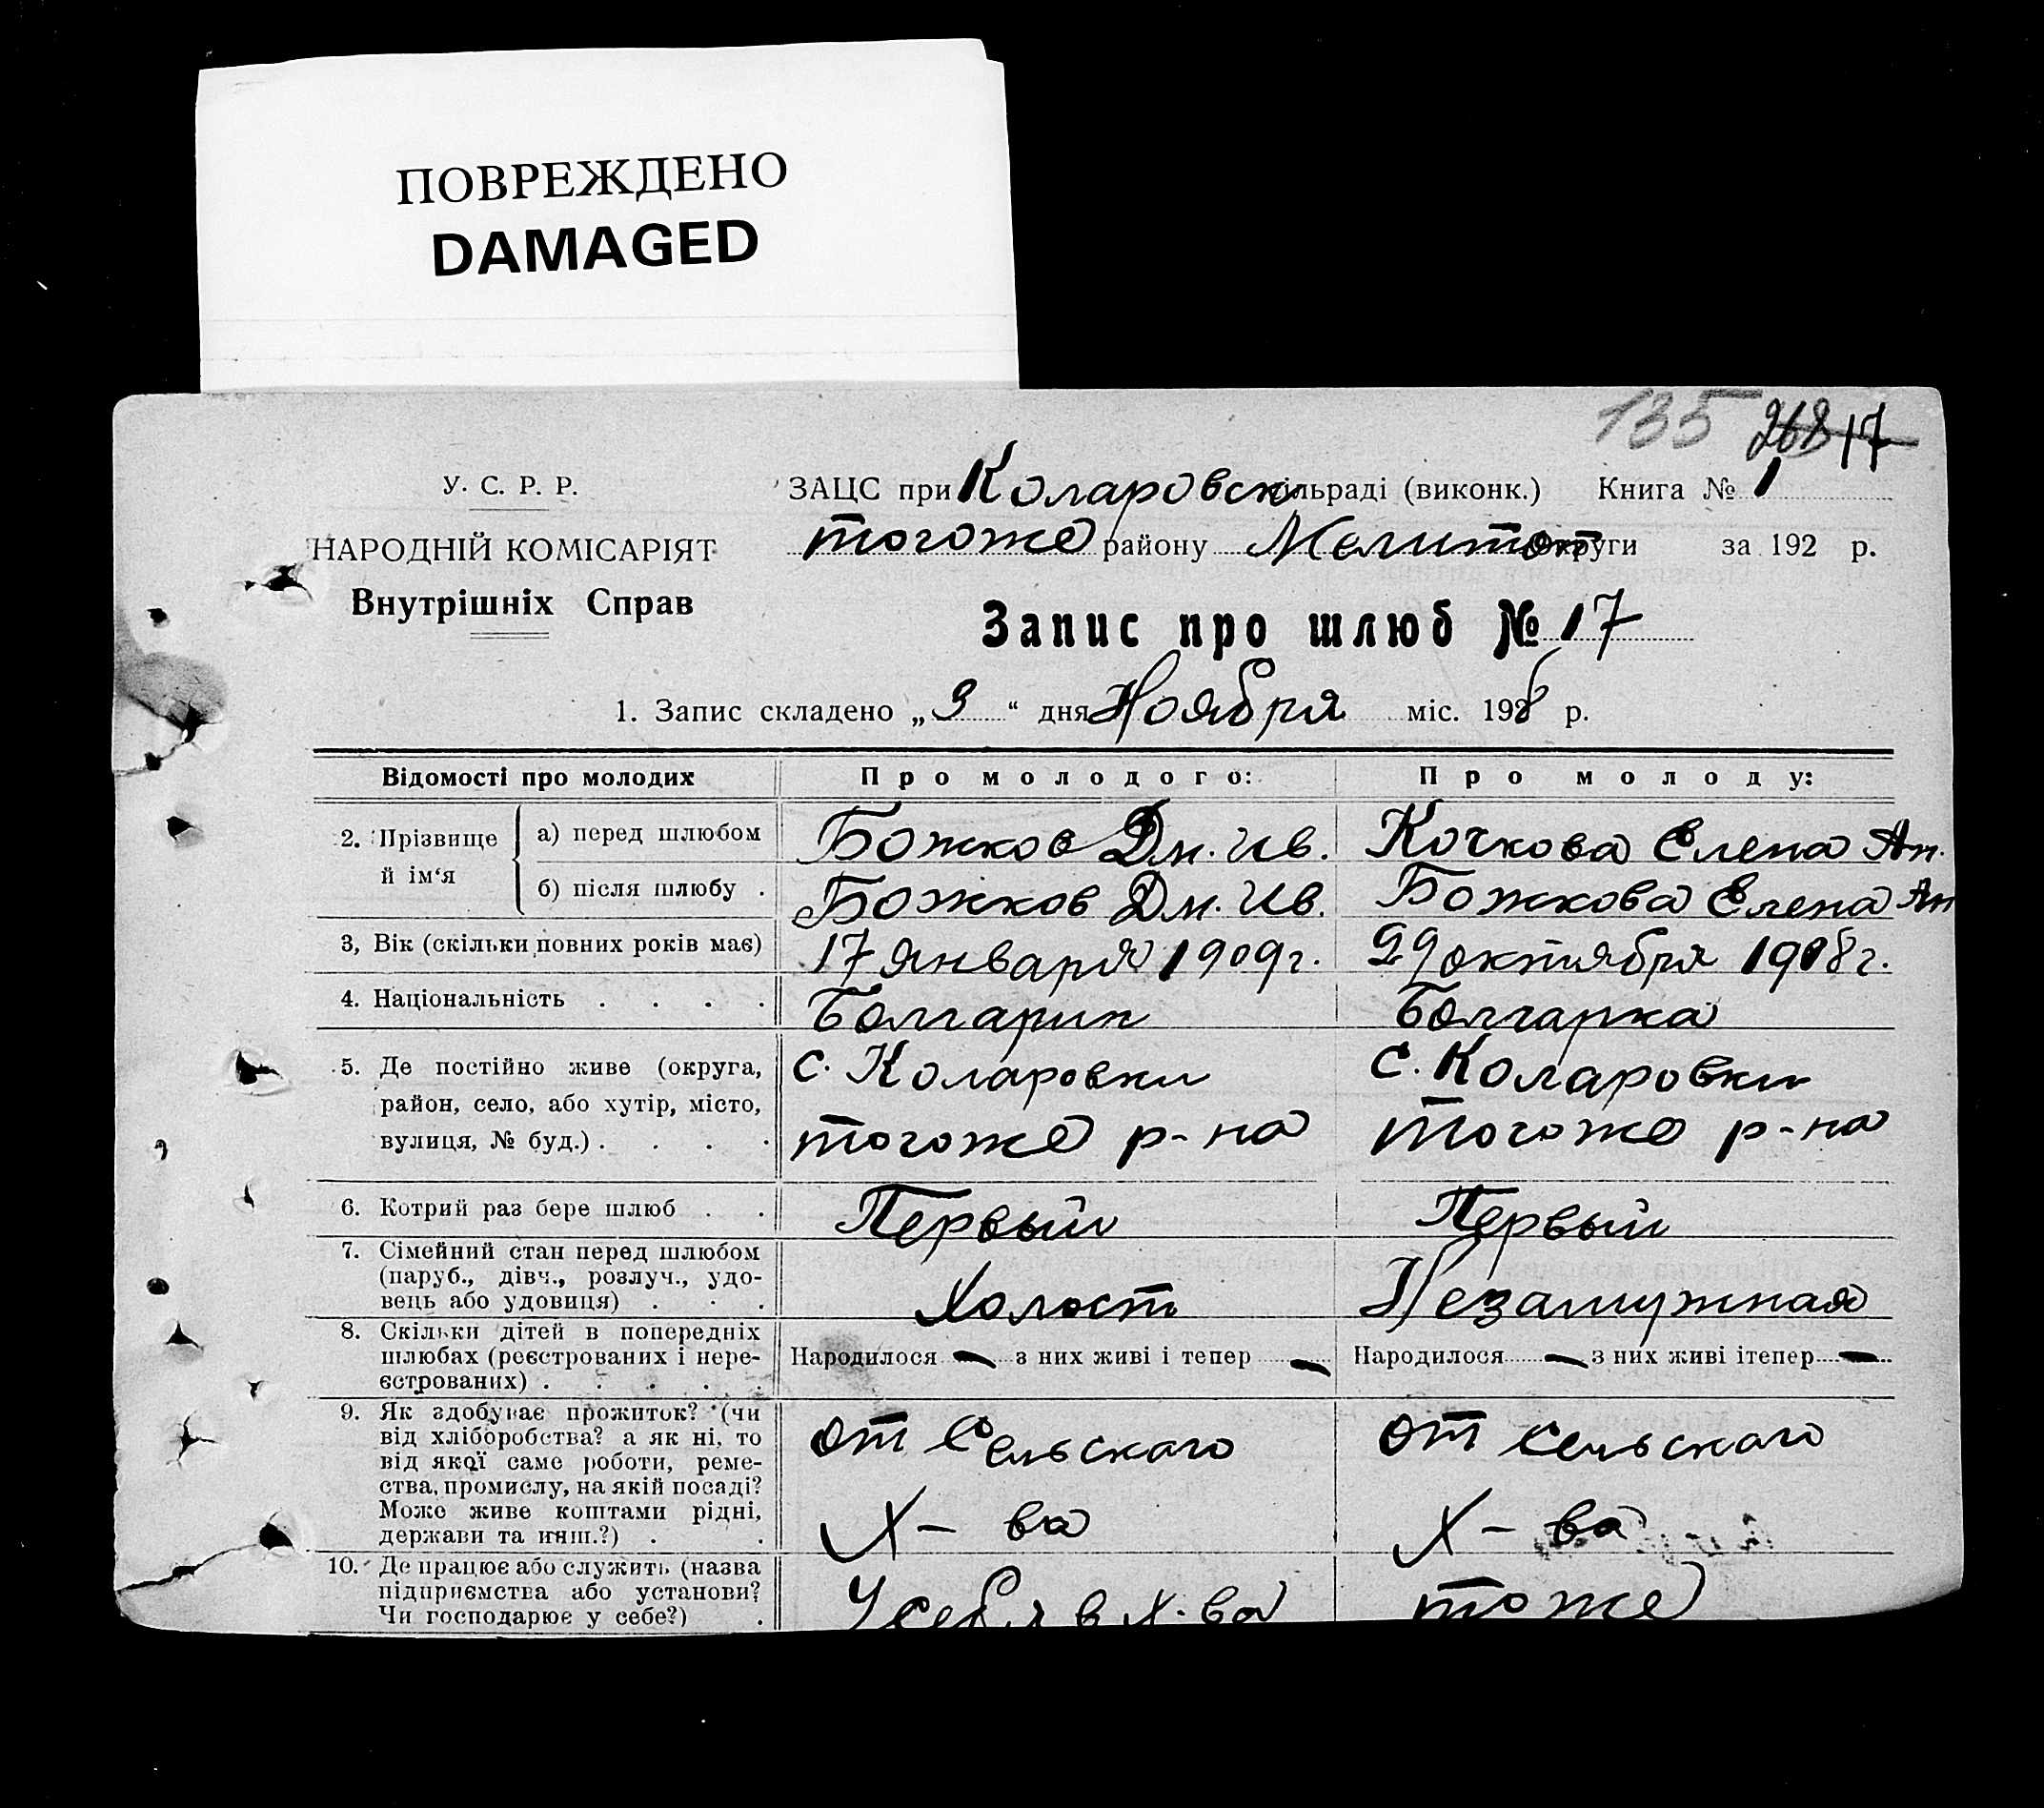 ПОВРЕЖДЕНО
DAMAGED
135 268 17
У. С. Р. Р.
НАРОДНІЙ КОМІСАРІЯТ
Внутрішніх Справ
ЗАЦС при Коларовск сільраді (виконк.) Книга № 1
тогоже району Мелитоп округи за 192 р.
Запис про шлюб № 17
1. Запис складено „3“ дня Ноября міс. 1928 р.
Відомості про молодих Про молодого: Про молоду:
2. Прізвище й ім‘я а) перед шлюбом Божков Дм. Ив. Кочкова Елена Ан.
б) після шлюбу . Божков Дм. Ив. Божкова Елена Ан
3, Вік (скільки повних років має) 17 января 1909 г. 29 октября 1908 г.
4. Національність . . . . Болгарин Болгарка
5. Де постійно живе (округа, с. Коларовки с. Коларовки
район, село, або хутір, місто, тогоже р-на тогоже р-на
вулиця, № буд.) . . . .
6. Котрий раз бере шлюб . . Первый Первый
7. Сімейний стан перед шлюбом
(паруб., дівч., розлуч., удо-
вець або удовиця) . . . Холост Незамужная
8. Скільки дітей в попередніх
шлюбах (реєстрованих і нере- Народилося — з них живі і тепер — Народилося — з них живі ітепер —
єстрованих) . . . . .
9. Як здобуває прожиток? (чи
від хліборобства? а як ні, то от Сельскаго от сельскаго
від якої саме роботи, реме-
ства, промислу, на якій посаді?
Може живе коштами рідні, Х-ва Х-ва
держави та инш.?) . .
10. Де працює або служить (назва
підприємства або установи? У себя в х-ва тоже
Чи господарює у себе?) .